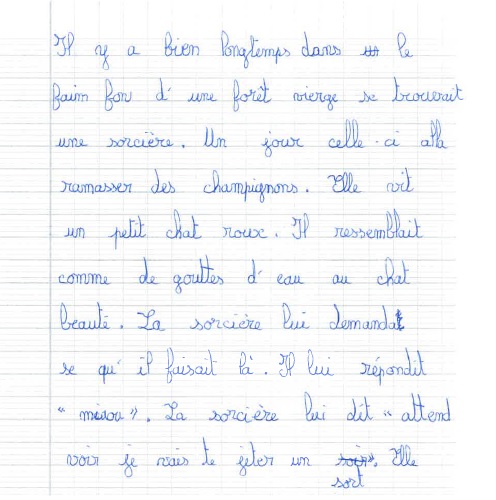 Il y a bien longtemps dans le
faim fon d'une forêt vierge se trouvrait
une sorcière. Un jour celle-ci alla
ramasser des champignons. Elle vit
un petit chat roux. Il ressemblait
comme de gouttes d'eau au chat
beauté. La sorcière lui demanda
se qu'il faisait là. Il lui répondit
" miaou ". La sorcière lui dit " attend
voir je vais te jeter un ". Elle
sort